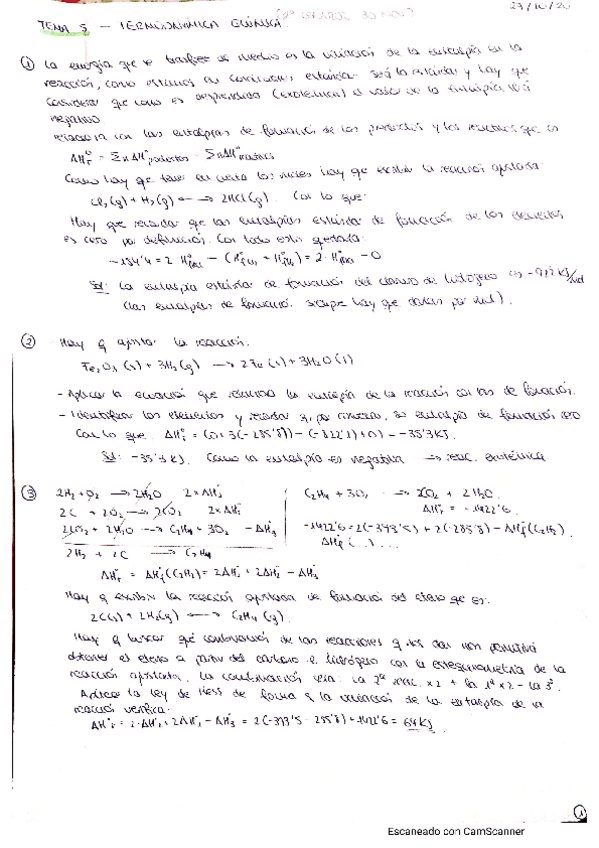 27/10/20
TEMA 5 - TERMODINÁMICA QUÍMICA.
① La energía que se transfiere al medio es la variación de la entalpía en la
reacción, como estamos en condiciones estándar será la estándar y hay que
considerar que como es desprendida (exotérmica) el valor de la entalpía será
negativo
relaciona con las entalpías de formación de los productos y los reactivos que es
ΔHr° = Σ nΔH° productos - Σ nΔH° reactivos
Como hay que tener en cuenta los moles hay que escribir la reacción ajustada
Cl₂(g) + H₂(g) ⟶ 2HCl(g). Con lo que:
Hay que recordar que las entalpías estándar de formación de los elementos
es cero por definición. Con todo esto quedaría:
-184'4 = 2 H° - (H° + H°) = 2 · H° - 0
Sol: La entalpía estándar de formación del cloruro de hidrógeno es -92'2 KJ/mol
(las entalpías de formación siempre hay que darlas por mol).
② Hay q ajustar la reacción.
Fe₂O₃(s) + 3H₂(g) ⟶ 2Fe(s) + 3H₂O(l)
- Aplicar la ecuación que relaciona la entalpía de la reacción con las de formación.
- Identificar los elementos y recordar q, por convenio, su entalpía de formación es 0
Con lo que ΔHr° = (0 + 3(-285'8)) - (-822'1) + 0) = -35'3 KJ.
Sol: -35'3 KJ. Como la entalpía es negativa ⟶ reac. exotérmica
③ 2H₂ + O₂ ⟶ 2H₂O 2×ΔH₁°
2C + 2O₂ ⟶ 2CO₂ 2×ΔH₂°
2CO₂ + 2H₂O ⟶ C₂H₄ + 3O₂ - ΔH₃°
2H₂ + 2C ⟶ C₂H₄
C₂H₄ + 3O₂ ⟶ 2CO₂ + 2H₂O.
ΔHr° = -1422'6
-1422'6 = 2(-393'5) + 2(-285'8) - ΔHf(C₂H₂)
ΔHf° (...) ...
ΔHr° = ΔHf°(C₂H₂) = 2ΔH₁° + 2ΔH₂° - ΔH₃°
Hay q escribir la reacción ajustada de formación del eteno que es:
2C(s) + 2H₂(g) ⟶ C₂H₄(g).
Hay q buscar qué combinación de las reacciones q nos dan nos permitirá
obtener el eteno a partir del carbono e hidrógeno con la estequiometría de la
reacción ajustada. La combinación sería: la 2ª reac. x2 + la 1ª x2 - la 3ª.
Aplicar la ley de Hess de forma q la variación de la entalpía de la
reacción verifica:
ΔHr° = 2·ΔH₁° + 2ΔH₂° - ΔH₃° = 2(-393'5 - 285'8) + 1422'6 = 64 KJ
①
Escaneado con CamScanner